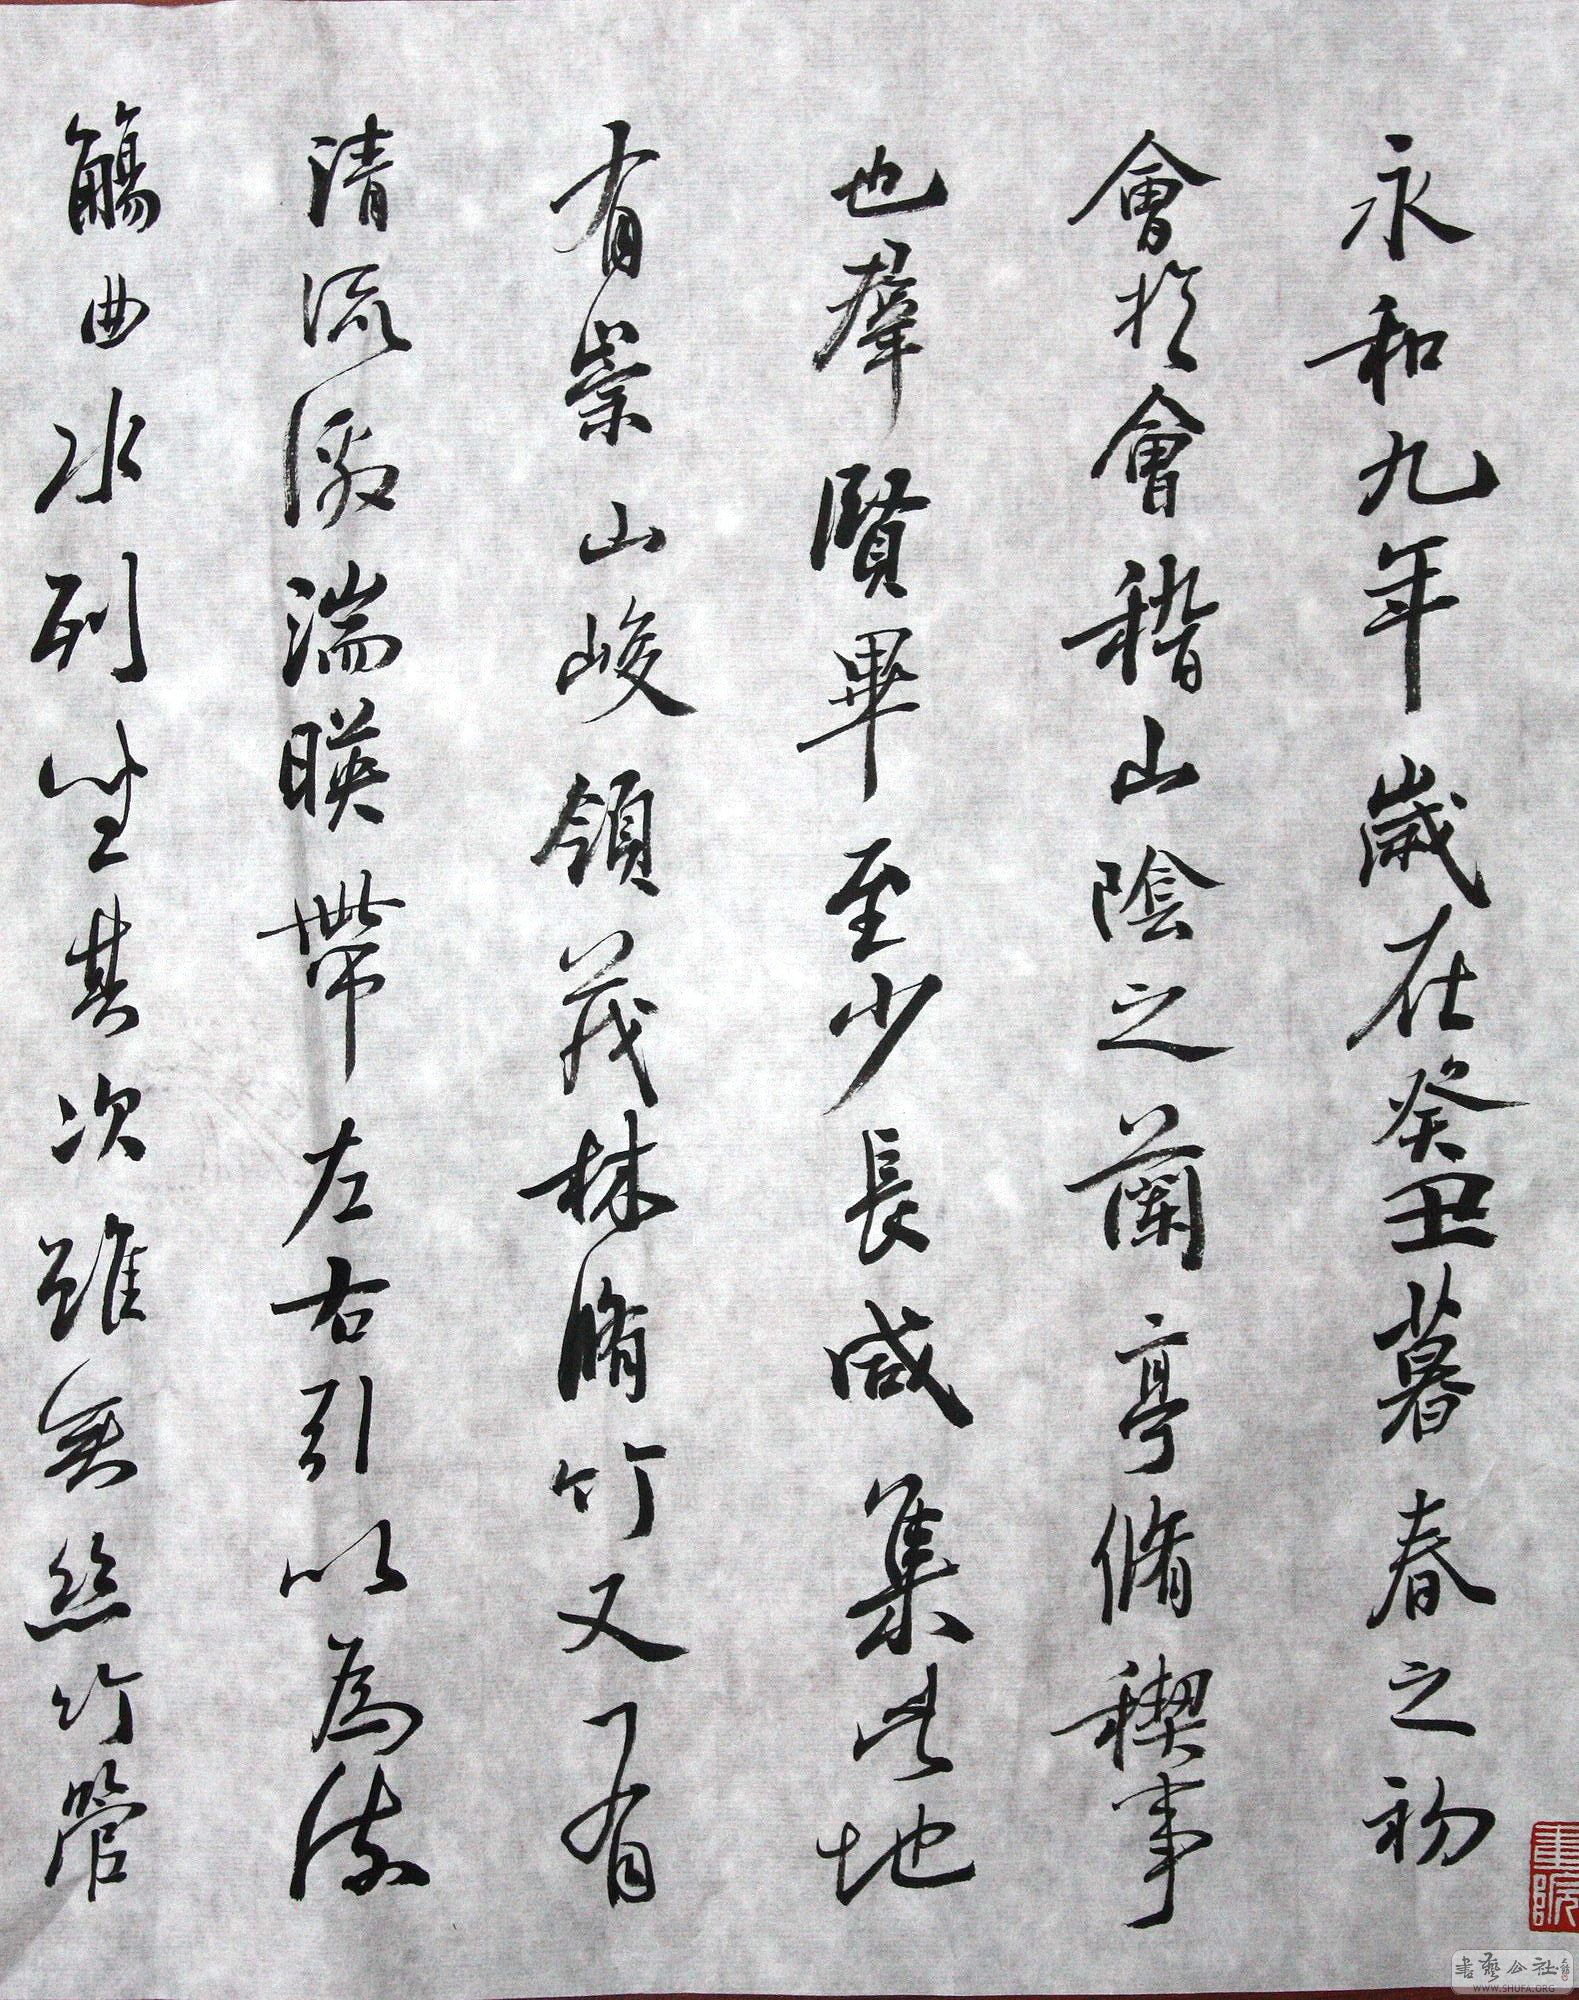 永和九年歲在癸丑暮春之初
會於會稽山陰之蘭亭脩稧事
也羣賢畢至少長咸集此地
有崇山峻領茂林脩竹又有
清流激湍暎帶左右引以為流
觴曲水列坐其次雖無絲竹管
書藝公社
WWW.SHUFA.ORG